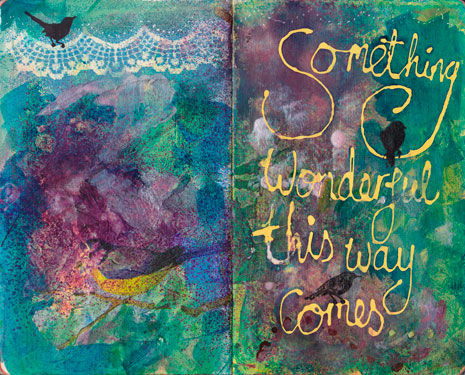 Something
Wonderful
this way
Comes...